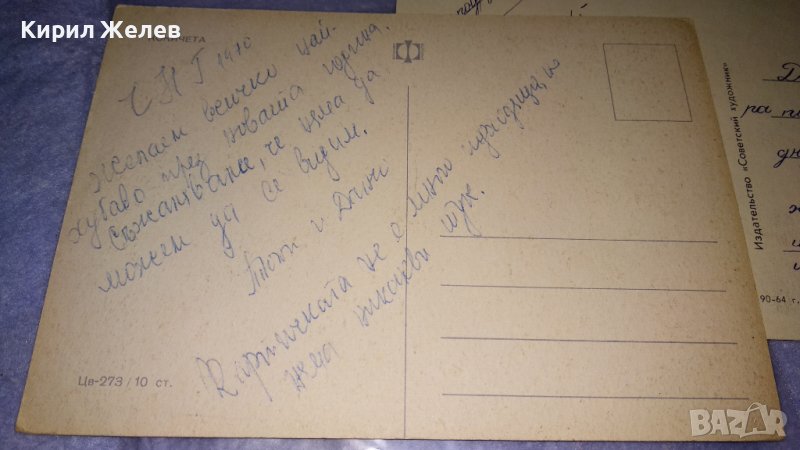 Кирил Желев
ЧНГ 1970
Желаем всичко най-
хубаво през новата година.
Съжаляваме, че няма да
можем да се видим.
и Дани
Картичката не е много подходяща, но
няма никакви тук.
Цв-273 / 10 ст.
Издательство «Советский художник»
90-64 г.
BAZAR